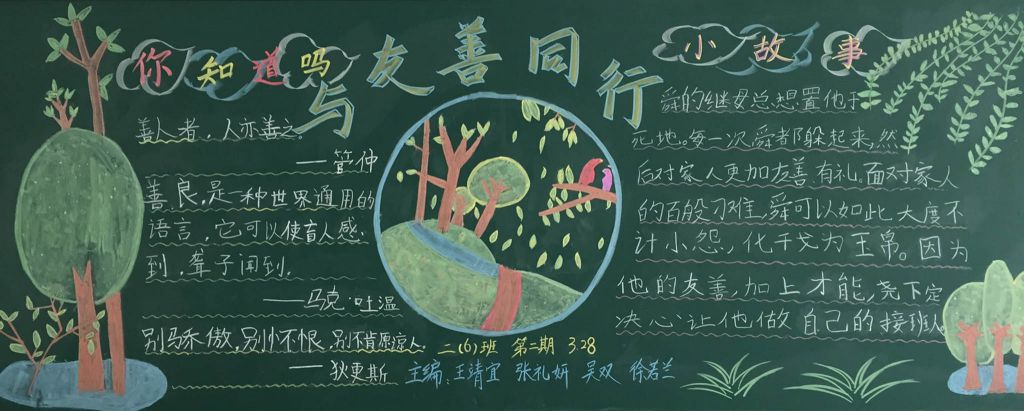 与友善同行
你知道吗
善人者，人亦善之。
——管仲
善良，是一种世界通用的
语言，它可以使盲人感
到，聋子闻到。
——马克·吐温
别骄傲，别怀恨，别不肯原谅人。
——狄更斯
二(6)班 第二期 3.28
主编：王靖宜 张礼妍 吴双 徐若兰
小故事
舜的继母总想置他于
死地。每一次舜都躲起来，然
后对家人更加友善有礼。面对家人
的百般刁难，舜可以如此大度不
计小怨，化干戈为玉帛。因为
他的友善，加上才能，尧下定
决心让他做自己的接班人。